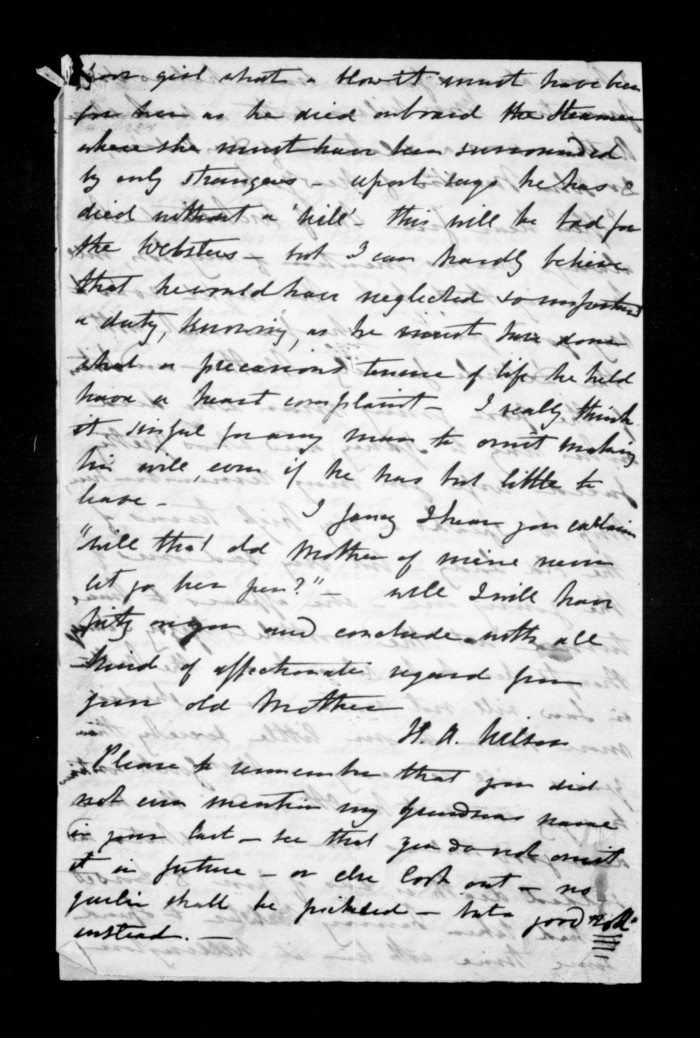 poor girl what a blow it must have been
for her as he died onboard the Steamer
where she must have been surrounded
by only strangers - report says he has
died without a 'will'. this will be bad for
the Websters - but I can hardly believe
that he would have neglected so important
a duty, knowing, as he must have done
what a precarious tenure of life he held
have a heart complaint - I really think
it sinful for any man to omit making
his will, even if he has but little to
leave - I fancy I hear you exclaim
"will that old Mother of mine never
let go her pen?" - well I will have
pity on you and conclude with all
kind of affectionate regard from
your old Mother
H. A. Wilson
Please to remember that you did
not even mention my Grandsons name
in your last - see that you do not omit
it in future - or else look out - no
shall be - but a good
instead. -